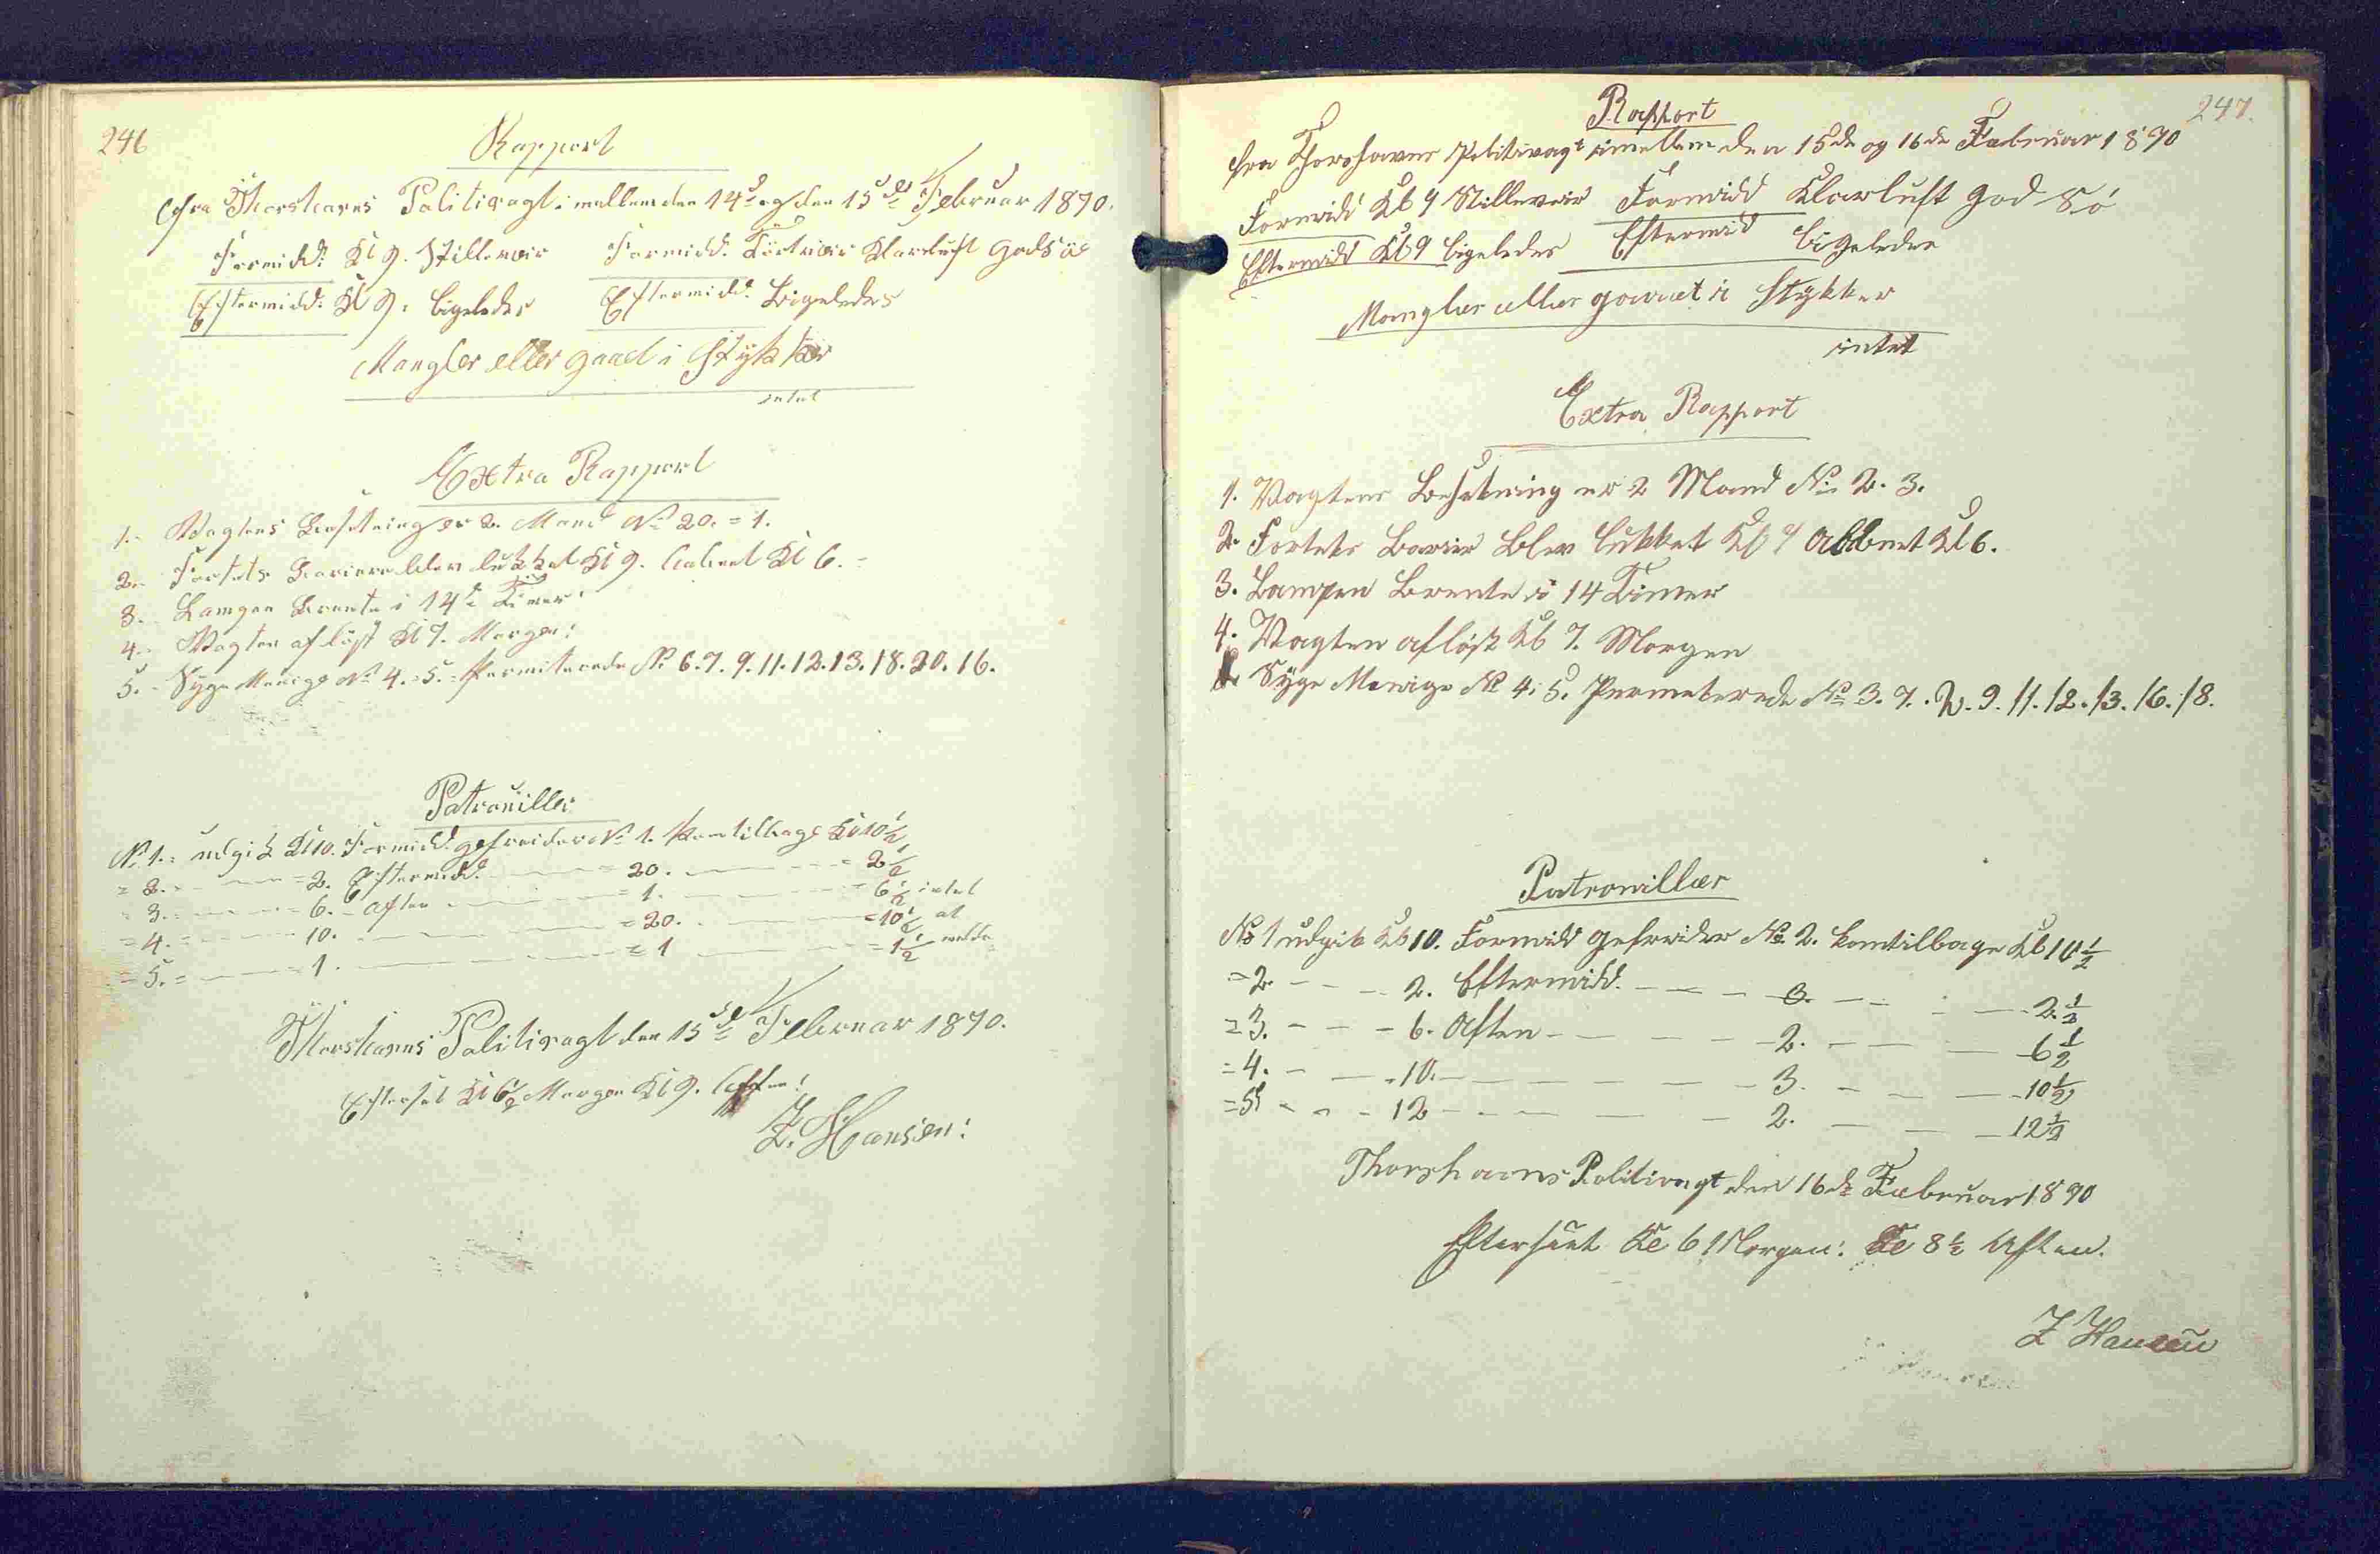 246
Rapport
fra Thorshavns Politivagt imellem den 14de og den 15de Februar 1890.
Formidd. Kl 9. Stillevær Formidd. Tørtvær Klarluft god Sö
Eftermidd. Kl 9. ligeledes Eftermidd. Ligeledes
Mangler eller gaaet i Stykker
intet
Extra Rapport
1. Vagtens Besetning er 2. Mand No 20. = 1.
2. Fortets Bariere blev lukket Kl 9. Aabnet Kl 6.
3. Lampen Brente i 14 Timer
4. Vagten aflöst Kl 7. Morgen:
5. Syge Menige No 4. 5. Permiterede No 6. 7. 9. 11. 12. 13. 18. 20. 16.
Patrouiller
No 1. udgik Kl 10. Formidd. gefreider No 1. kom tilbage Kl 10 1/2
= 2. = 2. Eftermidd. = 20. = 2 1/2
= 3. = 6. Aften = 1. = 6 1/2 intet
= 4. = 10. = 20. = 10 1/2 at
= 5. = 1. = 1 = 1 1/2 melde
Thorshavns Politivagt den 15de Februar 1890.
Efterset Kl 6 1/2 Morgen Kl 9. Aften:
Z. Hansen:
247.
Rapport
fra Thorshavns Politivagt imellem den 15de og 16de Februar 1890
Formidd Kl 9 Stillevær Formidd Klarluft god Sö
Eftermidd Kl 9 ligeledes Eftermid ligeledes
Mangler eller gaaet i Stykker
intet
Extra Rapport
1. Vagtens Besetning er 2 Mand No 2. 3.
2. Fortets Barier Blev lukket Kl 9 Aabnet Kl 6.
3. Lampen Brente i 14 Timer
4. Vagten aflöst Kl 7. Morgen
Syge Menige No 4. 5. Permeterede No 3. 7. . 9. 11. 12. 13. 16. 18.
Patrouiller
No 1 udgik Kl 10. Formidd gefreider No 2. kom tilbage Kl 10 1/2
= 2. - - - 2. Eftermidd. - - - 3. - - - 2 1/2
= 3. - - - 6. Aften - - - 2. - - - 6 1/2
= 4. - - - 10. - - - 3. - - - 10 1/2
= 5 - - - 12 - - - 2. - - - 12 1/2
Thorshavns Politivagt den 16de Februar 1890
Efterseet Kl 6 Morgen: Kl 8 1/2 Aften.
Z Hansen